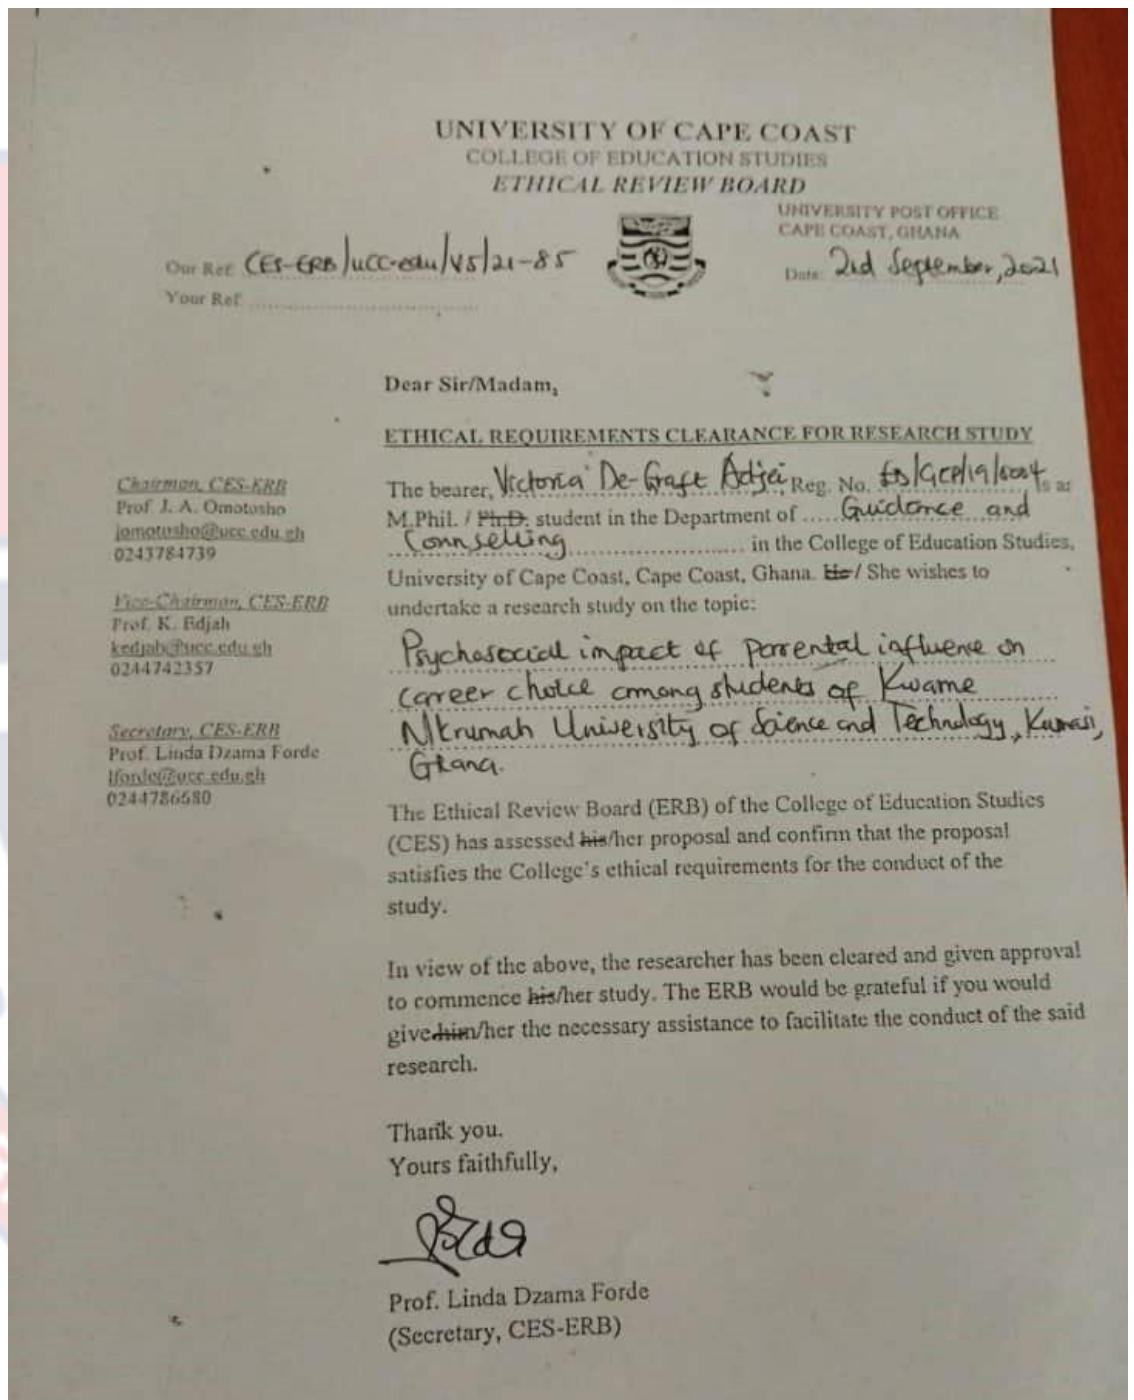 UNIVERSITY OF CAPE COAST
COLLEGE OF EDUCATION STUDIES
ETHICAL REVIEW BOARD
UNIVERSITY POST OFFICE
CAPE COAST, GHANA
Our Ref: CES-ERB/ucc-edu/V5/21-85
Date: 2nd September, 2021
Your Ref:
Dear Sir/Madam,
ETHICAL REQUIREMENTS CLEARANCE FOR RESEARCH STUDY
Chairman, CES-ERB
Prof. J. A. Omotosho
jomotosho@ucc.edu.gh
0243784739
Vice-Chairman, CES-ERB
Prof. K. Edjah
kedjah@ucc.edu.gh
0244742357
Secretary, CES-ERB
Prof. Linda Dzama Forde
lforde@ucc.edu.gh
0244786680
The bearer, Victoria De-Graft Adjei, Reg. No. is an
M.Phil. / Ph.D. student in the Department of ..... Guidance and
Counselling ........................ in the College of Education Studies,
University of Cape Coast, Cape Coast, Ghana. He / She wishes to
undertake a research study on the topic:
Psychosocial impact of parental influence on
career choice among students of Kwame
Nkrumah University of Science and Technology, Kumasi,
Ghana.
The Ethical Review Board (ERB) of the College of Education Studies
(CES) has assessed his/her proposal and confirm that the proposal
satisfies the College's ethical requirements for the conduct of the
study.
In view of the above, the researcher has been cleared and given approval
to commence his/her study. The ERB would be grateful if you would
give him/her the necessary assistance to facilitate the conduct of the said
research.
Thank you.
Yours faithfully,
Prof. Linda Dzama Forde
(Secretary, CES-ERB)